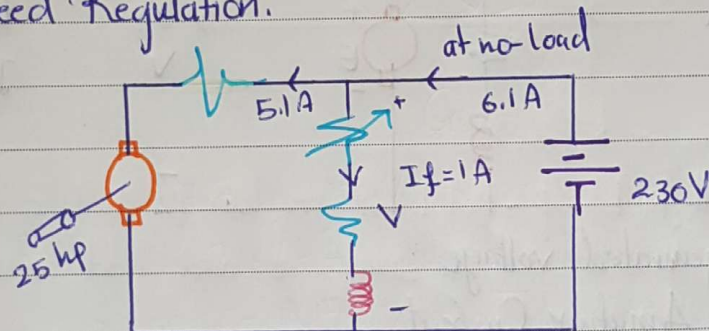 eed Regulation.
at no-load
5.1A
6.1 A
+
If=1A
V
230V
25 hp
-